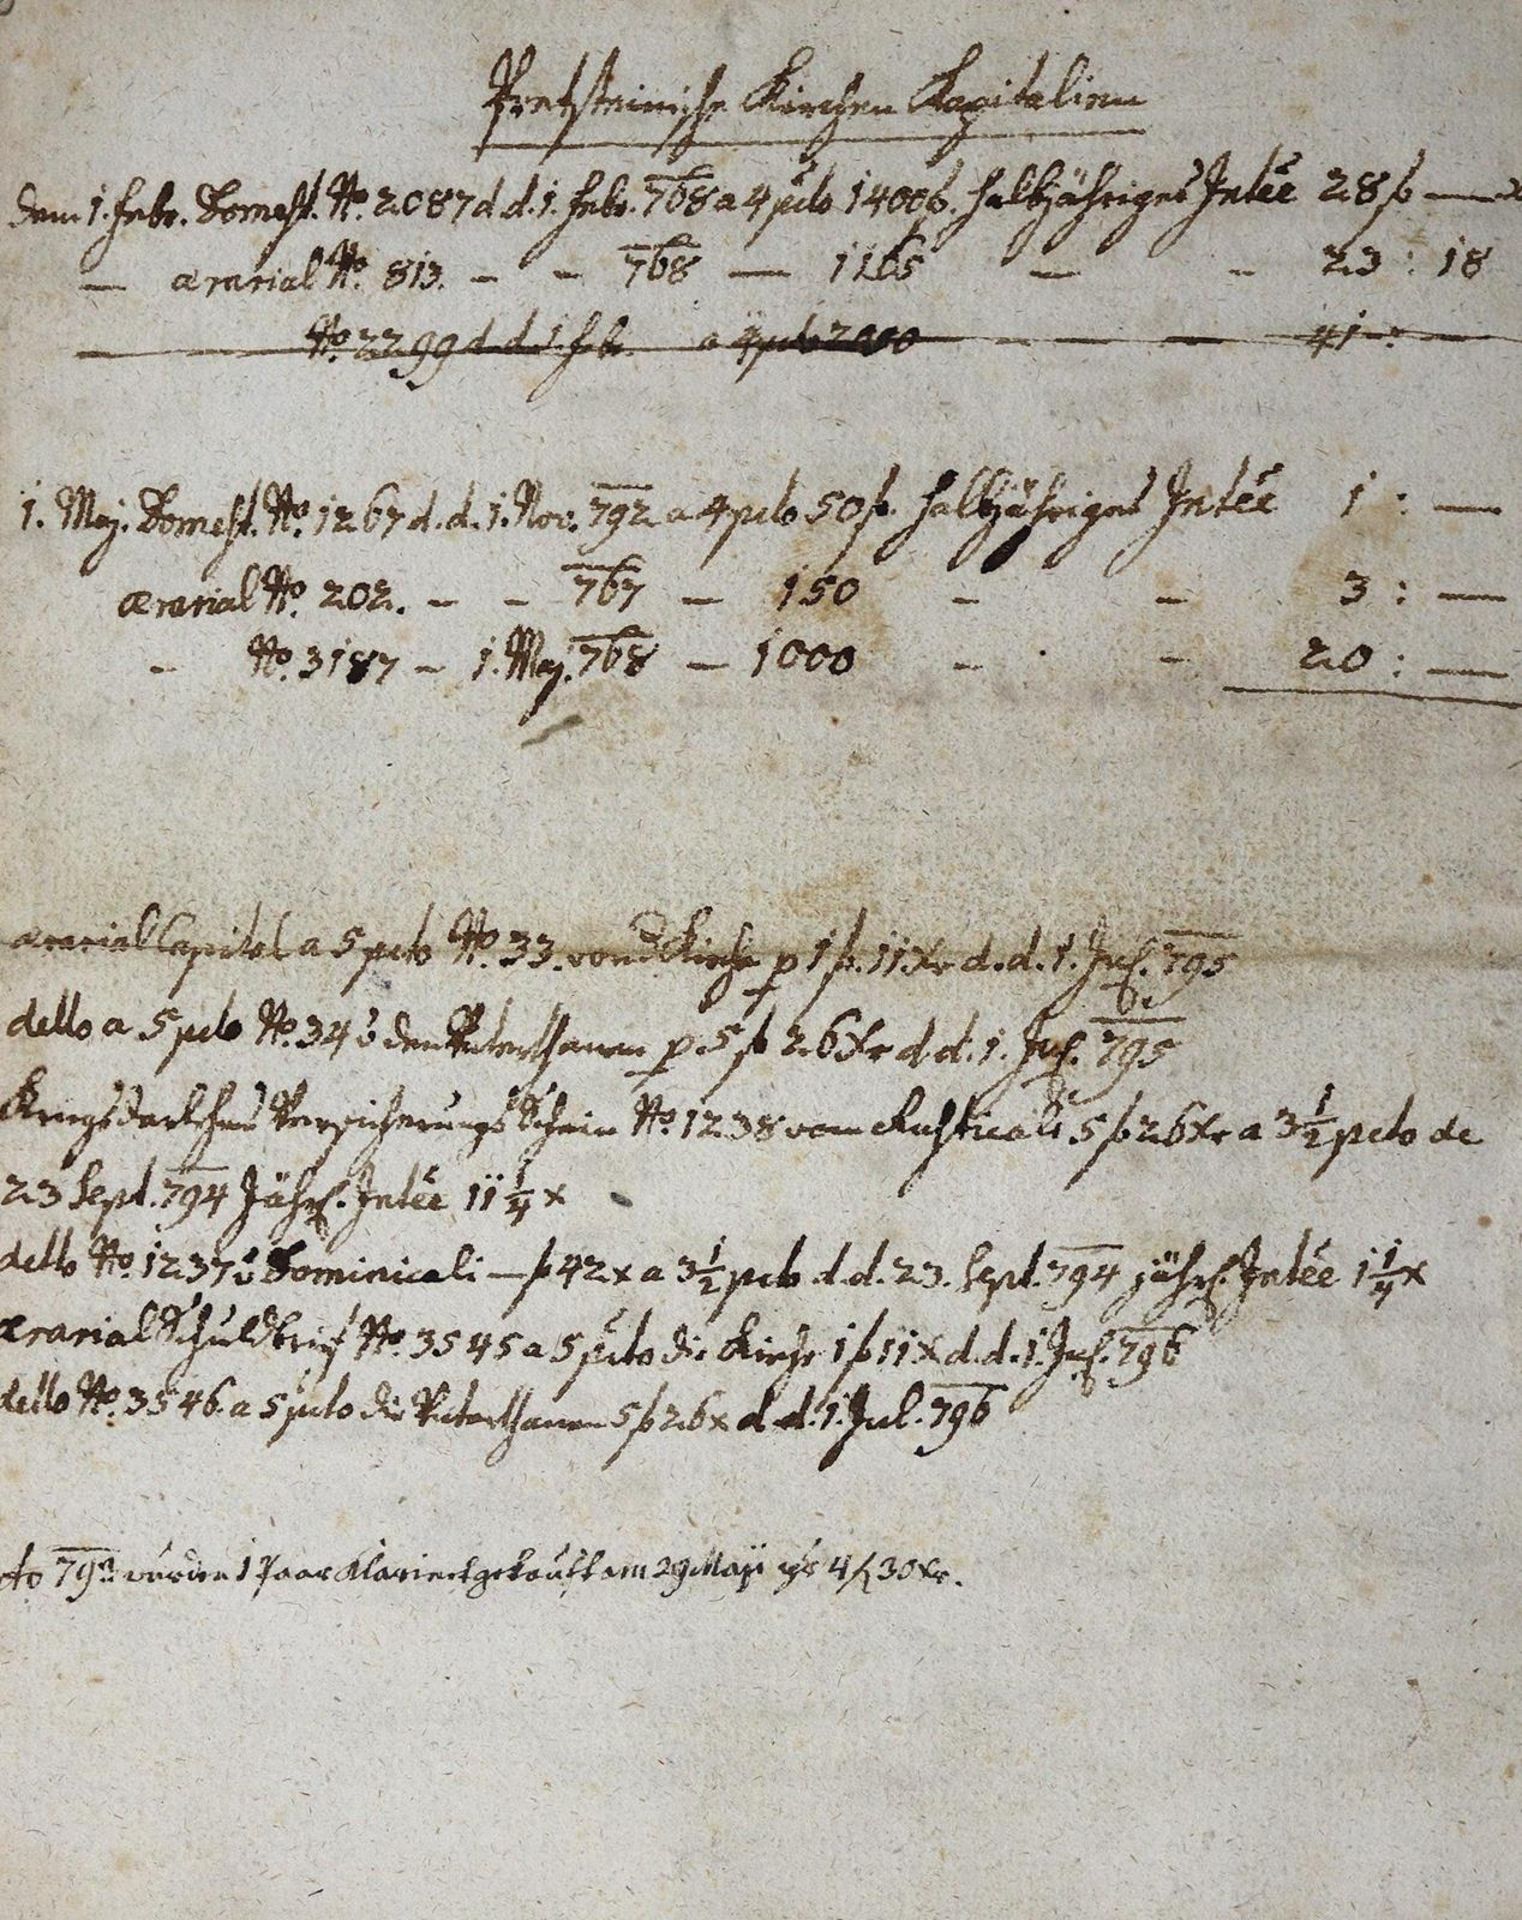 Kirchen Kapitalien
dem 1. Febr. Domest. No. 2087 d. d. 1. Febr. 768 a 4 pcto 1400 f. halbjähriges Intée 28 f —
— ærarial No. 813. - - 768 — 1165 — - 23 : 18
No. 2299 d. d. 1. Feb. a 4 pcto - - - 41 :
1. Maj. Domest. No. 1267 d. d. 1. Nov. 792 a 4 pcto 50 f. halbjähriges Intée 1 : —
ærarial No. 202. - - 767 — 150 - - 3 : —
- No. 3187 - 1. Maj. 768 — 1000 - - 20 : —
ærarial Capital a 5 pcto No. 33. von d Kirche p 1 f. 11 Xr d. d. 1. Jul. 795
detto a 5 pcto No. 34 v den Unterthanen p. 5 f 26 Xr d. d. 1. Jul. 795
Kriegsdarlehens Versicherungs Schein No. 1238 vom Rusticali 5 f 26 Xr a 3 1/2 pcto de
23 Sept. 794 Jährl. Intée 11 1/4 x
detto No. 1237 v Dominicali — f 42 x a 3 1/2 pcto d. d. 23. Sept. 794 jährl. Intée 1 1/4 x
ærarial Schuldbrief No. 3545 a 5 pcto die Kirche 1 f 11 X d. d. 1. Jul. 796
detto No. 3546. a 5 pcto die Unterthanen 5 f 26 x d. d. 1. Jul. 796
wurden 1 Paar Klarinet gekauft am 29 Maji 4 f 30 Xr.